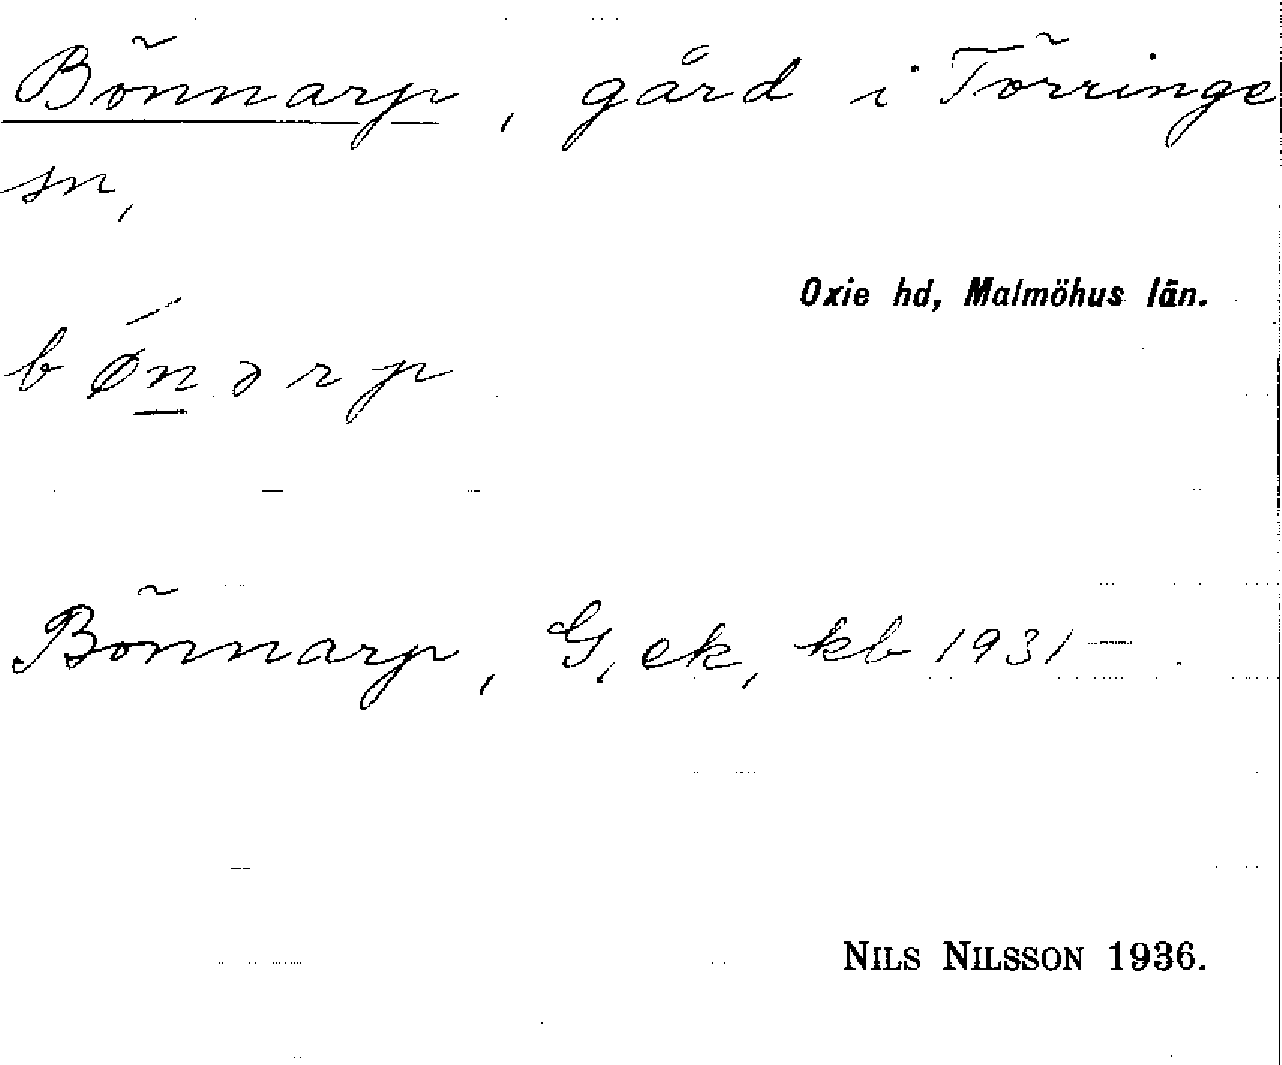 Bönnarp, gård i Törringe
sn,
Oxie hd, Malmöhus län.
b ǿn̲ ə r p
Bönnarp, G, ek, kb 1931—.
NILS NILSSON 1936.